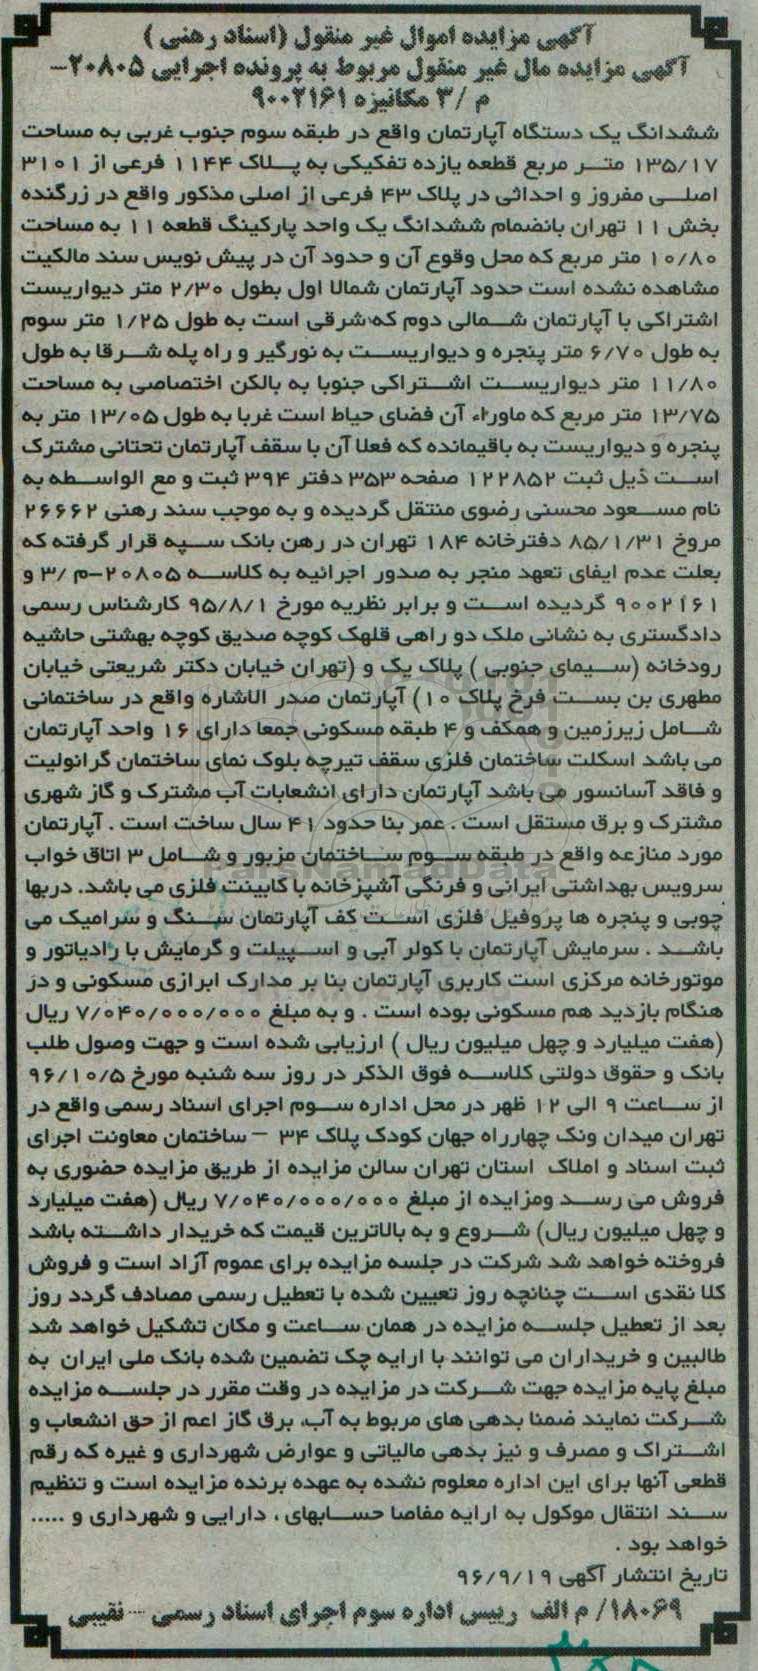 آگهی مزایده اموال غیر منقول (اسناد رهنی )
آگهی مزایده مال غیر منقول مربوط به پرونده اجرایی ۲۰۸۰۵-
م /۳ مکانیزه ۹۰۰۲۱۶۱
ششدانگ یک دستگاه آپارتمان واقع در طبقه سوم جنوب غربی به مساحت
۱۳۵/۱۷ متر مربع قطعه یازده تفکیکی به پلاک ۱۱۴۴ فرعی از ۳۱۰۱
اصلی مفروز و احداثی در پلاک ۴۳ فرعی از اصلی مذکور واقع در زرگنده
بخش ۱۱ تهران بانضمام ششدانگ یک واحد پارکینگ قطعه ۱۱ به مساحت
۱۰/۸۰ متر مربع که محل وقوع آن و حدود آن در پیش نویس سند مالکیت
مشاهده نشده است حدود آپارتمان شمالا اول بطول ۲/۳۰ متر دیواریست
اشتراکی با آپارتمان شمالی دوم که شرقی است به طول ۱/۲۵ متر سوم
به طول ۶/۷۰ متر پنجره و دیواریست به نورگیر و راه پله شرقا به طول
۱۱/۸۰ متر دیواریست اشتراکی جنوبا به بالکن اختصاصی به مساحت
۱۳/۷۵ متر مربع که ماوراء آن فضای حیاط است غربا به طول ۱۳/۰۵ متر به
پنجره و دیواریست به باقیمانده که فعلا آن با سقف آپارتمان تحتانی مشترک
است ذیل ثبت ۱۲۲۸۵۲ صفحه ۳۵۳ دفتر ۳۹۴ ثبت و مع الواسطه به
نام مسعود محسنی رضوی منتقل گردیده و به موجب سند رهنی ۲۶۶۶۲
مروخ ۸۵/۱/۳۱ دفترخانه ۱۸۴ تهران در رهن بانک سپه قرار گرفته که
بعلت عدم ایفای تعهد منجر به صدور اجرائیه به کلاسه ۲۰۸۰۵-م /۳ و
۹۰۰۲۱۶۱ گردیده است و برابر نظریه مورخ ۹۵/۸/۱ کارشناس رسمی
دادگستری به نشانی ملک دو راهی قلهک کوچه صدیق کوچه بهشتی حاشیه
رودخانه (سیمای جنوبی ) پلاک یک و (تهران خیابان دکتر شریعتی خیابان
مطهری بن بست فرخ پلاک ۱۰) آپارتمان صدر الاشاره واقع در ساختمانی
شامل زیرزمین و همکف و ۴ طبقه مسکونی جمعا دارای ۱۶ واحد آپارتمان
می باشد اسکلت ساختمان فلزی سقف تیرچه بلوک نمای ساختمان گرانولیت
و فاقد آسانسور می باشد آپارتمان دارای انشعابات آب مشترک و گاز شهری
مشترک و برق مستقل است . عمر بنا حدود ۴۱ سال ساخت است . آپارتمان
مورد منازعه واقع در طبقه سوم ساختمان مزبور و شامل ۳ اتاق خواب
سرویس بهداشتی ایرانی و فرنگی آشپزخانه با کابینت فلزی می باشد. دربها
چوبی و پنجره ها پروفیل فلزی است کف آپارتمان سنگ و سرامیک می
باشد . سرمایش آپارتمان با کولر آبی و اسپیلت و گرمایش با رادیاتور و
موتورخانه مرکزی است کاربری آپارتمان بنا بر مدارک ابرازی مسکونی و در
هنگام بازدید هم مسکونی بوده است . و به مبلغ ۷/۰۴۰/۰۰۰/۰۰۰ ریال
(هفت میلیارد و چهل میلیون ریال ) ارزیابی شده است و جهت وصول طلب
بانک و حقوق دولتی کلاسه فوق الذکر در روز سه شنبه مورخ ۹۶/۱۰/۵
از ساعت ۹ الی ۱۲ ظهر در محل اداره سوم اجرای اسناد رسمی واقع در
تهران میدان ونک چهارراه جهان کودک پلاک ۳۴ – ساختمان معاونت اجرای
ثبت اسناد و املاک استان تهران سالن مزایده از طریق مزایده حضوری به
فروش می رسد ومزایده از مبلغ ۷/۰۴۰/۰۰۰/۰۰۰ ریال (هفت میلیارد
و چهل میلیون ریال) شروع و به بالاترین قیمت که خریدار داشته باشد
فروخته خواهد شد شرکت در جلسه مزایده برای عموم آزاد است و فروش
کلا نقدی است چنانچه روز تعیین شده با تعطیل رسمی مصادف گردد روز
بعد از تعطیل جلسه مزایده در همان ساعت و مکان تشکیل خواهد شد
طالبین و خریداران می توانند با ارایه چک تضمین شده بانک ملی ایران به
مبلغ پایه مزایده جهت شرکت در مزایده در وقت مقرر در جلسه مزایده
شرکت نمایند ضمنا بدهی های مربوط به آب، برق گاز اعم از حق انشعاب و
اشتراک و مصرف و نیز بدهی مالیاتی و عوارض شهرداری و غیره که رقم
قطعی آنها برای این اداره معلوم نشده به عهده برنده مزایده است و تنظیم
سند انتقال موکول به ارایه مفاصا حسابهای ، دارایی و شهرداری و .....
خواهد بود .
تاریخ انتشار آگهی ۹۶/۹/۱۹
۱۸۰۶۹/ م الف رییس اداره سوم اجرای اسناد رسمی – نقیبی
ParsNamadData